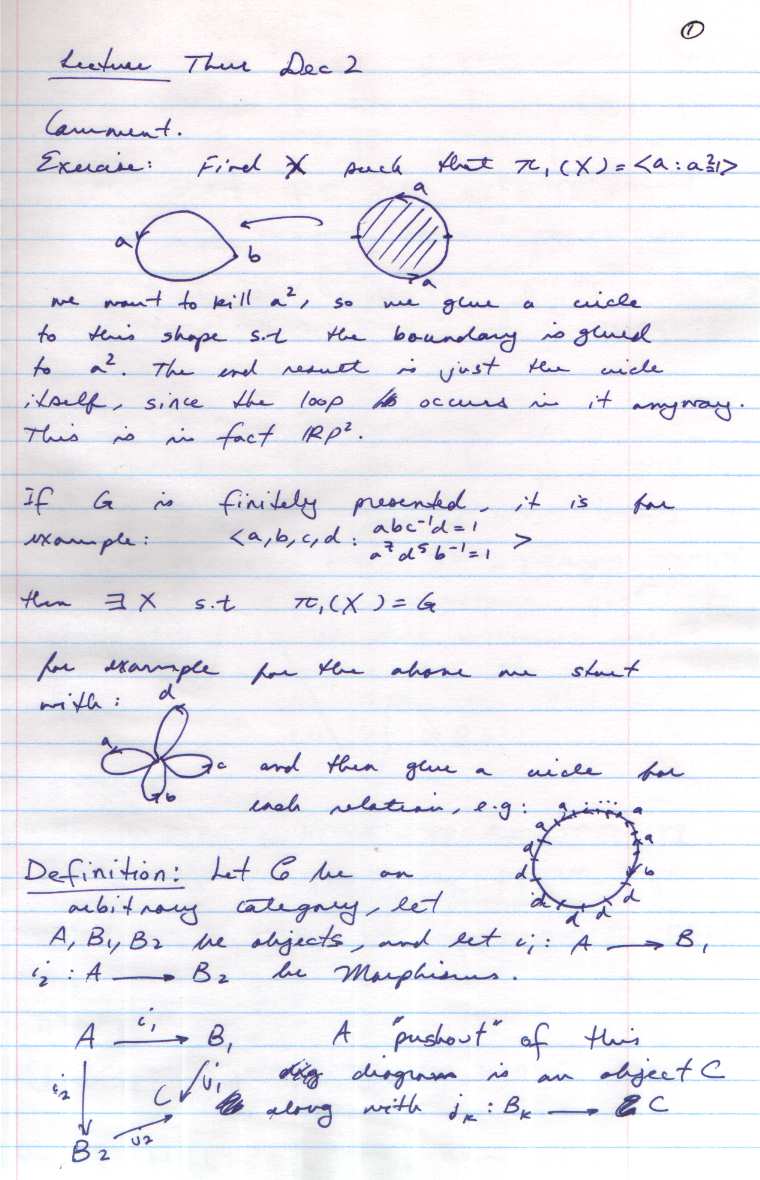 ①
Lecture Thur Dec 2
Comment.
Exercise: Find X such that π₁(X) = <a : a²=1>
a
a b
a
we want to kill a², so we glue a circle
to this shape s.t the boundary is glued
to a². The end result is just the circle
itself, since the loop occurs in it anyway.
This is in fact IRP².
If G is finitely presented, it is for
example: <a,b,c,d : abc⁻¹d=1
a⁷d⁵b⁻¹=1 >
then ∃ X s.t π₁(X) = G
for example for the above we start
with:
d
a
c and then glue a circle for
b
each relation, e.g:
a ... a
a a
a b
d d
d d d
Definition: Let C be an
arbitrary category, let
A, B₁, B₂ be objects, and let i₁ : A → B₁
i₂ : A → B₂ be Morphisms.
A i₁ → B₁ A "pushout" of this
i₂ C j₁ diagram is an object C
along with jₖ : Bₖ → C
B₂ j₂